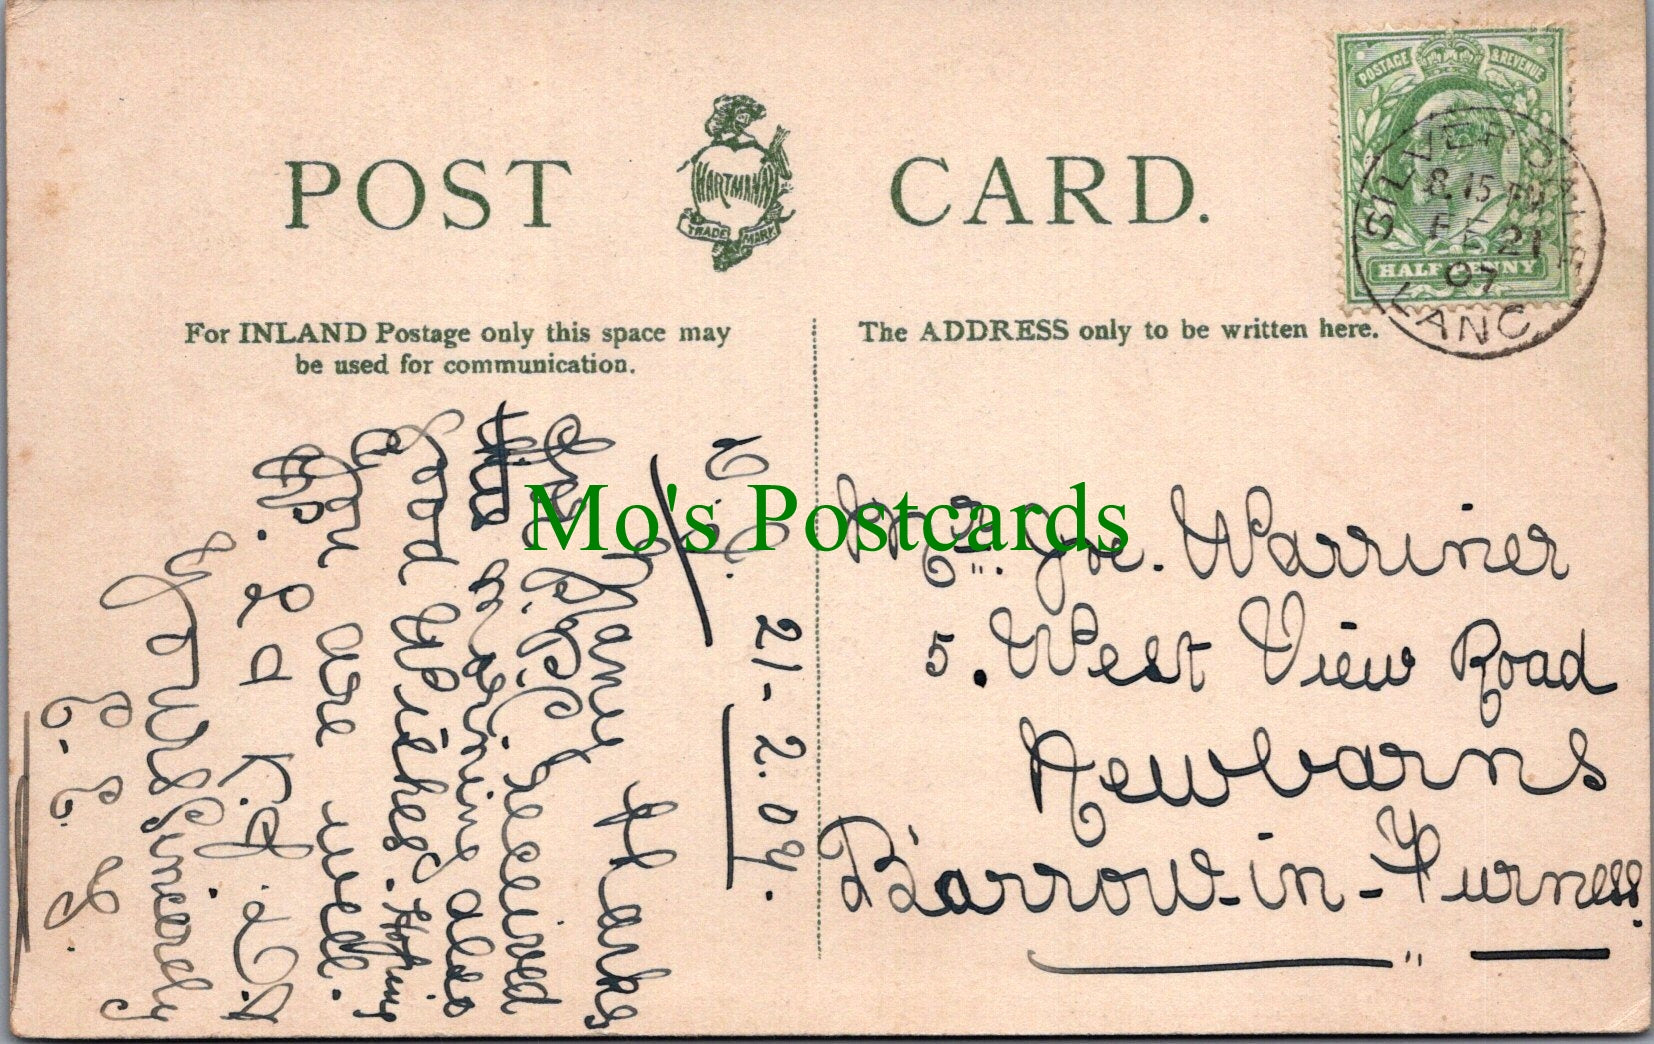 POST CARD.
HARTMANN
TRADE MARK
POSTAGE & REVENUE
HALFPENNY
SILVERDALE
8.15 PM
FE 21
07
LANC
For INLAND Postage only this space may
be used for communication.
The ADDRESS only to be written here.
21-2.07.
Many thanks
for P.P.C. received
this morning also
Good Wishes. Hoping
you are well.
Yours Sincerely
Mrs. Joe. Warriner
5. West View Road
Newbarns
Barrow-in-Furness.
Mo's Postcards